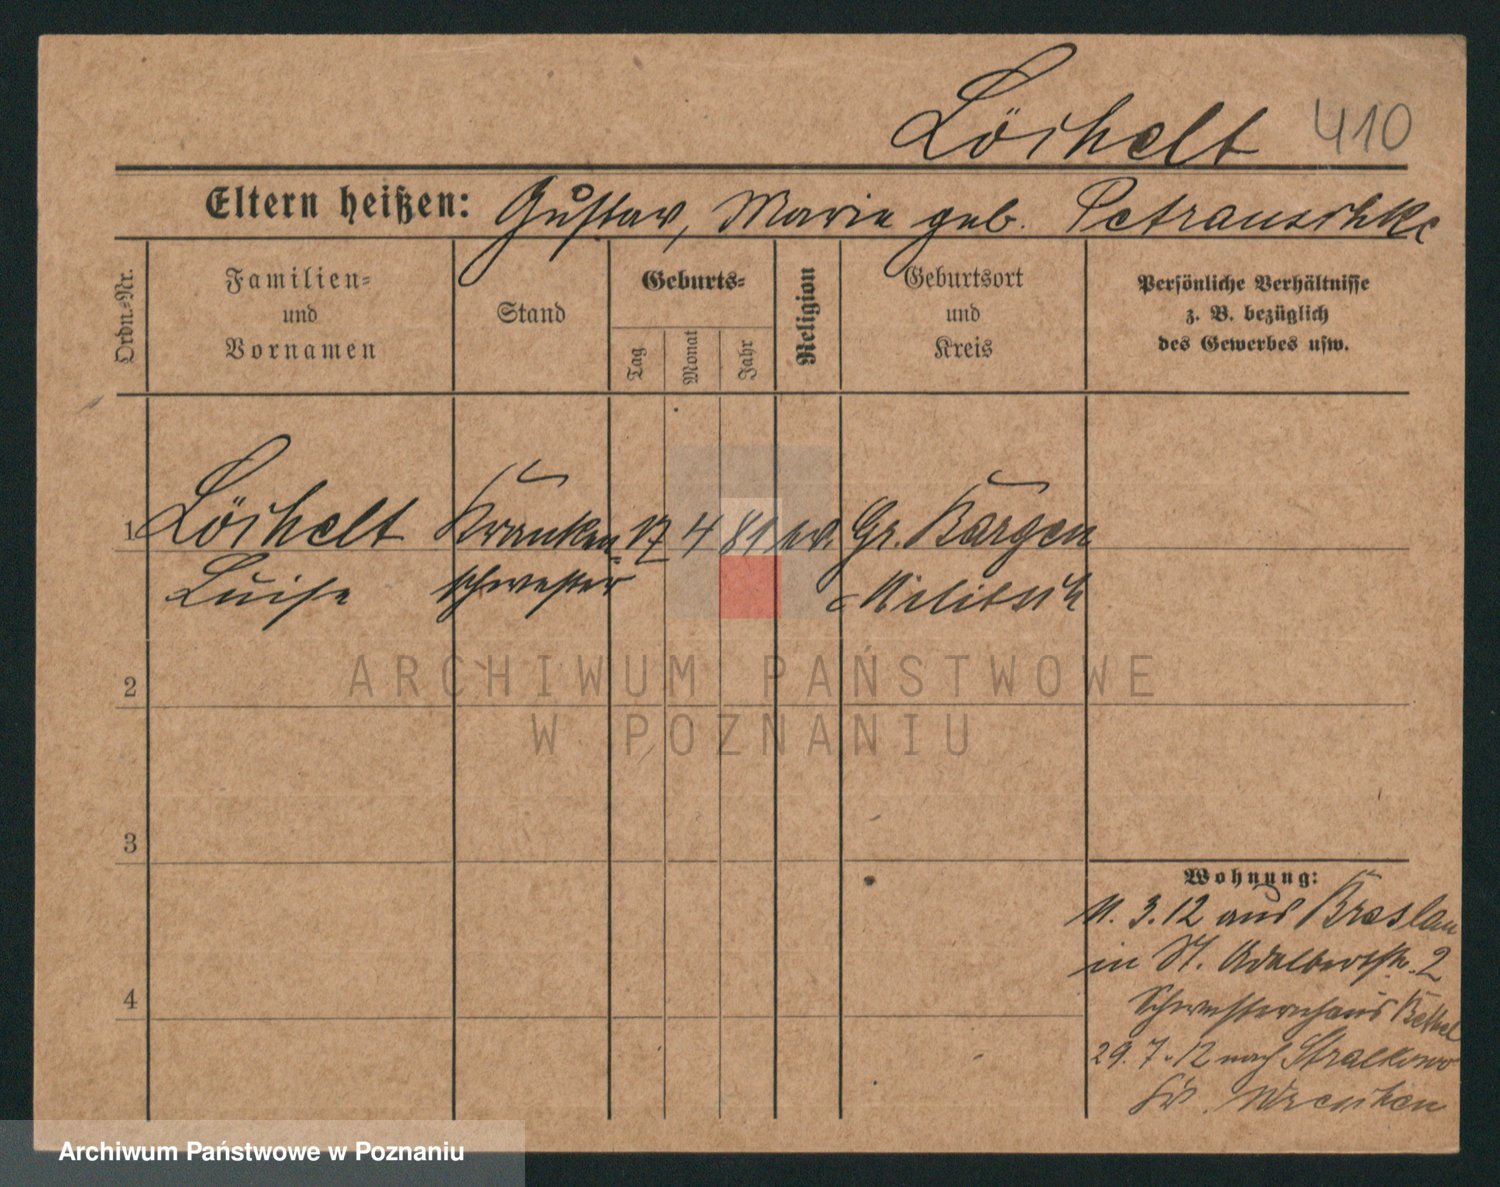 Löschelt 410
Eltern heißen: Gustav, Marie geb. Petrauschke
Ordn.-Nr.
Familien-
und
Vornamen
Stand
Geburts-
Tag
Monat
Jahr
Religion
Geburtsort
und
Kreis
Persönliche Verhältnisse
z. B. bezüglich
des Gewerbes usw.
1 Löschelt Kranken 17 4 81 ev. Gr. Bargen
Luise schwester Militsch
2
3
4
Wohnung:
11. 3. 12 aus Breslau
in St. Adalbertstr. 2
Schwesternhaus Bethel
29. 7. 12 nach Stralkowo
Kr. Wreschen
ARCHIWUM PAŃSTWOWE
W POZNANIU
Archiwum Państwowe w Poznaniu